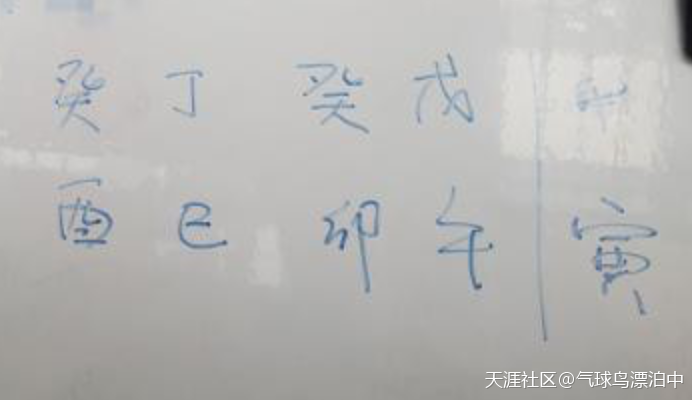 癸 丁 癸 戊
酉 巳 卯 午 寅
天涯社区@气球鸟漂泊中